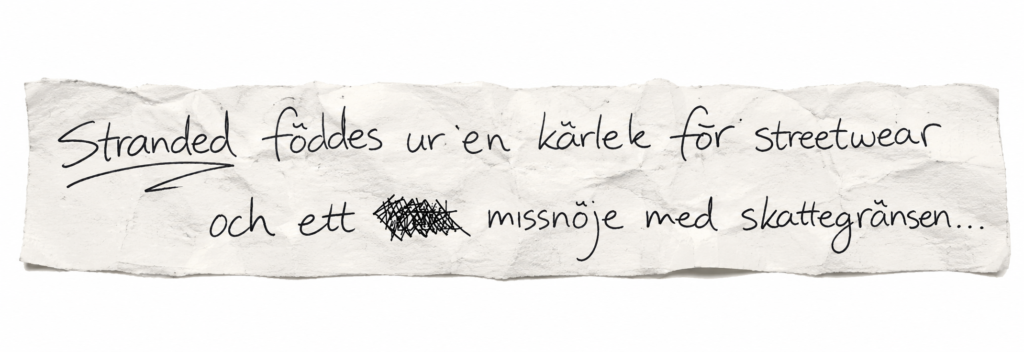 Stranded föddes ur en kärlek för streetwear
och ett missnöje med skattegränsen...